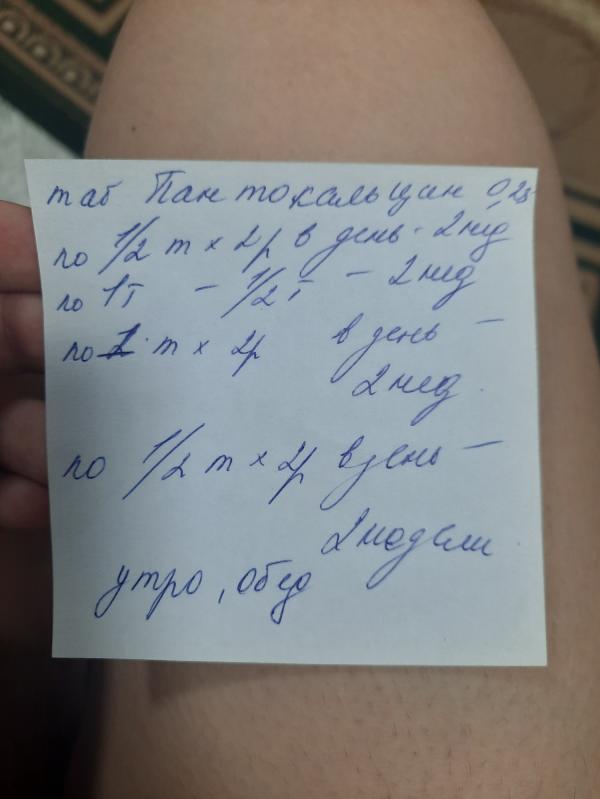 таб Пантокальцин 0,25
по 1/2 т × 2р в день - 2 нед
по 1т - 1/2т - 2 нед
по 1 т × 2р в день -
2 нед.
по 1/2 т × 2р в день -
2 недели
утро, обед